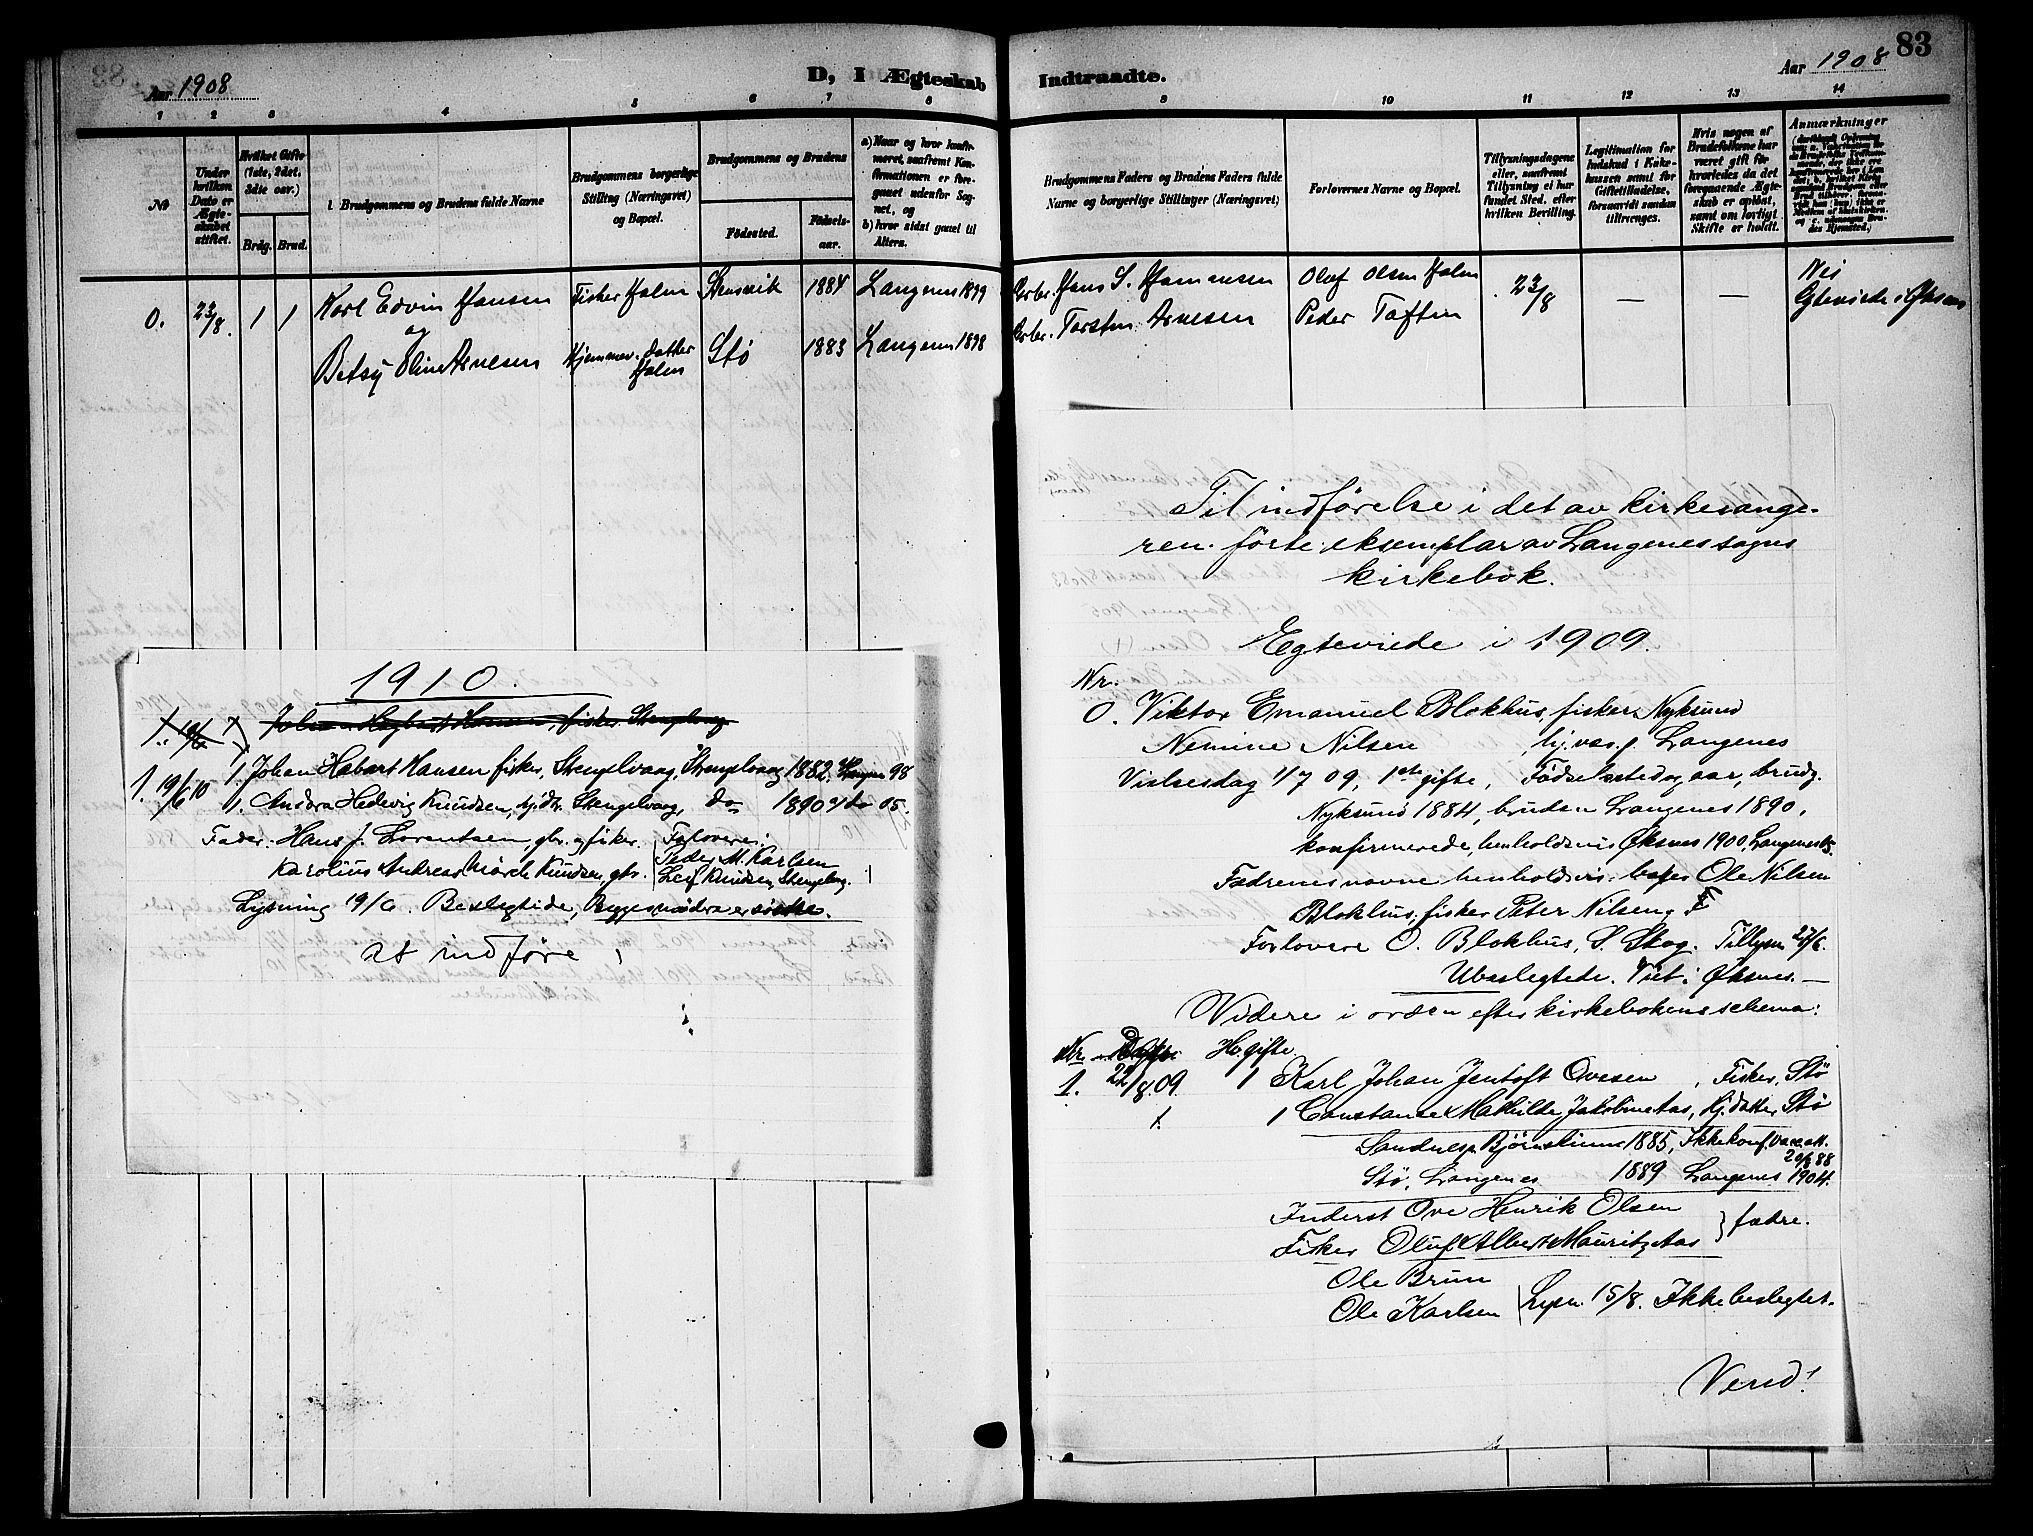 83
Aar 1908
D, I Ægteskab
Indtraadte.
Aar 1908
1 2 3 4 5 6 7 8 9 10 11 12 13 14
№
Under hvilken Dato er Ægteskabet stiftet.
Hvilket Gifte (1ste, 2det, 3die osv.)
Brdg. Brud.
Brudgommens og Brudens fulde Navne
Brudgommens borgerlige Stilling (Næringsvei) og Bopæl.
Brudgommens og Brudens
Fødested.
Fødsels-aar.
a) Naar og hvor konfirmeret, saafremt Konfirmationen er foregaaet udenfor Sognet, og
b) hvor sidst gaaet til Alters.
Brudgommens Faders og Brudens Faders fulde Navne og borgerlige Stillinger (Næringsvei)
Forlovernes Navne og Bopæl.
Tillysningsdagene eller, saafremt Tillysning ei har fundet Sted, efter hvilken Bevilling.
Legitimation for Indskud i Enkekassen samt for Giftetilladelse, forsaavidt saadan tiltrænges.
Hvis nogen af Brudefolkene har været gift før hvorledes da det foregaaende Ægteskab er opløst, samt om lovligt Skifte er holdt.
Anmærkninger
0. 23/8. 1 1 Karl Edvin Hansen Fisker Holm 1884 Langenes 1899 Hans S. Hansen Oluf Olsen Holm 23/8 — — Nei
og Gteviede i Øksnes
Betsy Oline Arnesen Hjemmev. datter Holm Stø 1883 Langenes 1898 Torsten Arnesen Peder Toften
1910.
1. 19/6 10 1. Johan Habart Hansen fisker, Stengelvaag, Stengelvaag 1882. 98
1. Andora Hedevig Knudsen, hj.dtr. Stengelvaag, do 1890 do 05.
Fader: Hans J. Lorentsen, gbr. og fisker. Forlovere:
Karolius Andreas Mørch Knudsen, gbr. Peder M. Karlsen
Leif Knudsen, Stengelvg.
Lysning 19/6. Beslegtede, Begges mødre er søstre.
at indføre
Til indførelse i det av kirkesange-
ren førte eksemplar av Langenes sogns
kirkebok.
Egteviede i 1909.
Nr.
0. Viktor Emanuel Blokhus, fisker Nyksund
Nemine Nilsen hj.vær. Langenes
Vielsesdag 1/7 09, 1ste gifte, Fødselssted og aar, brudg.
Nyksund 1884, bruden Langenes 1890,
konfirmerede, henholdsvis Øksnes 1900, Langenes 05.
Fædrenes navne henholdsvis: Ole Nilsen
Blokhus, fisker Peter Nilsen,
Forlovere O. Blokhus, S. Skog. Tillysn 27/6.
Ubeslegtede. Viet i Øksnes. —
Videre i orden efter kirkebokens schema:
Nr. Hv. gifte
1. 22/8.09 1 Karl Johan Jentoft Ovesen, Fisker, Stø
1. 1 Constanse Mathilde Jakobine Aas, Hj.datter, Stø
Sandnesp. Bjørnskinn 1885, Ikke konf. vacc. att.
20/8 88
Stø, Langenes 1889 Langenes 1904.
Inderst Ove Henrik Olsen
Fisker Oluf Albert Mauritz Aas } fædre.
Ole Brun
Ole Karlsen Lysn. 15/8. Ikke beslegtet.
Vend!